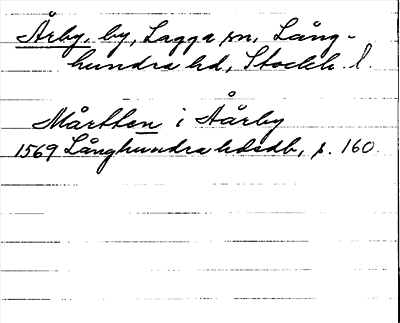 Årby, by, Lagga sn, Lång-
hundra hd, Stockh. l.
Mårtten i Åårby
1569 Långhundra hdsdb, s. 160.